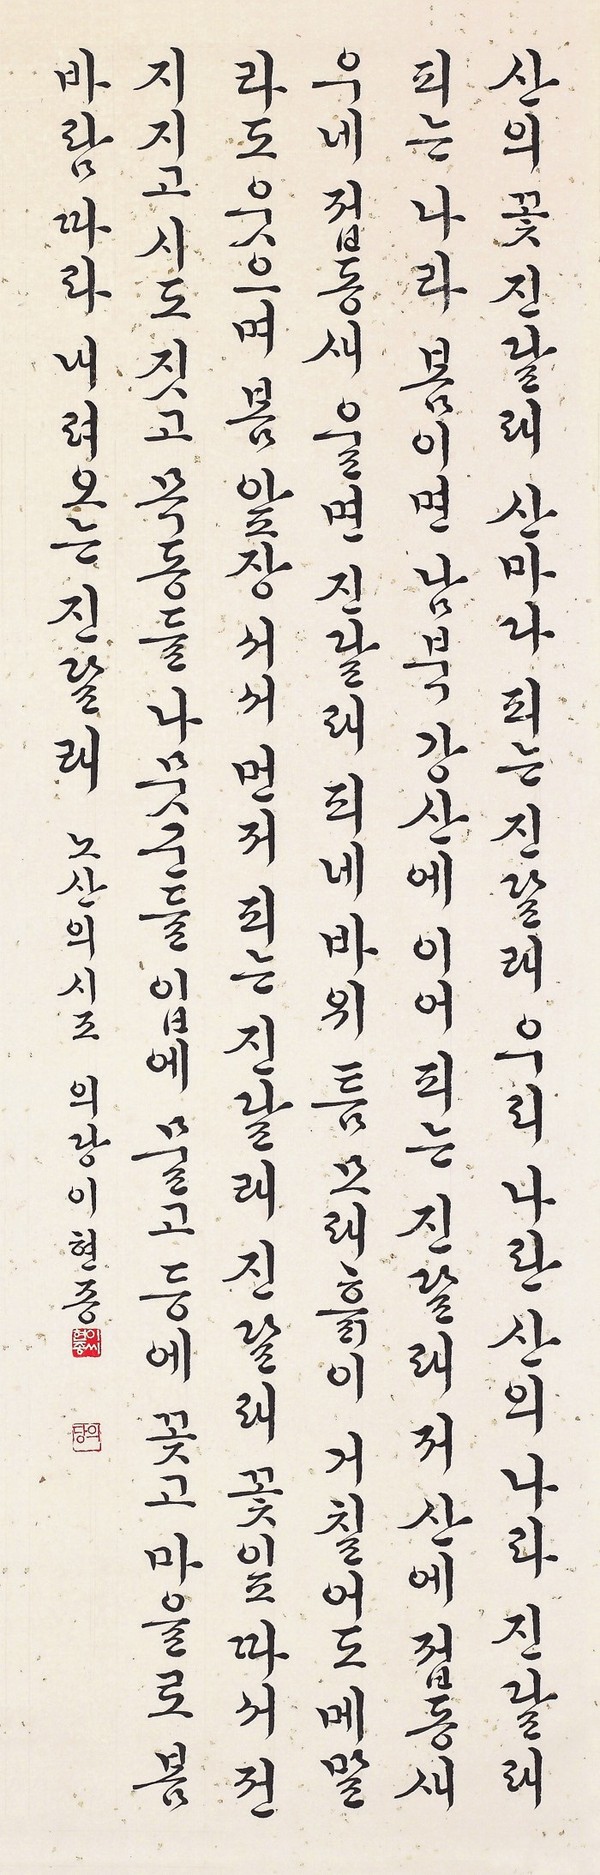 산의 꽃 진달래 산마다 피는 진달래 우리 나란 산의 나라 진달래
피는 나라 봄이면 남북 강산에 이어 피는 진달래 저 산에 접동새
우네 접동새 울면 진달래 피네 바위 틈 모래흙이 거칠어도 메말
라도 웃으며 봄 앞장 서서 먼저 피는 진달래 진달래 꽃잎 따서 전
지지고 시도 짓고 목동들 나뭇군들 입에 물고 등에 꽂고 마을로 봄
바람 따라 내려오는 진달래 노산의 시조 의당 이현종
이씨현종
의당